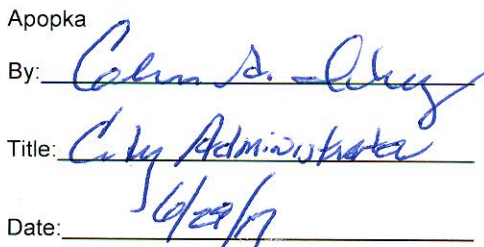 Apopka
By:
Title: City Administrator
Date: 6/29/17